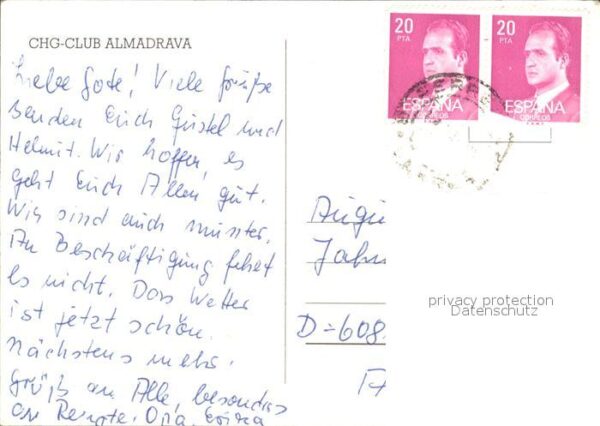 CHG-CLUB ALMADRAVA
Liebe Gote! Viele Grüße
senden Euch Gustel und
Helmut. Wir hoffen, es
geht Euch Allen gut.
Wir sind auch munter.
An Beschäftigung fehlt
es nicht. Das Wetter
ist jetzt schön.
Nächstens mehr.
Grüße an Alle, besonders
an Renate, Opa, Erika
20 PTA
ESPAÑA
CORREOS
20 PTA
ESPAÑA
CORREOS
Jahn
privacy protection
Datenschutz
D-608